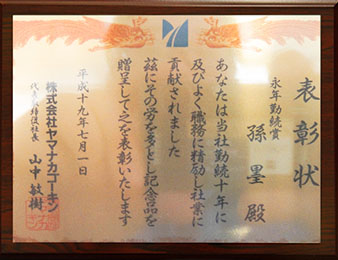 表彰状
永年勤続賞
孫墨殿
あなたは当社勤続十年に
及びよく職務に精励し社業に
貢献されました
茲にその労を多とし記念品を
贈呈して之を表彰いたします
平成十九年七月一日
株式会社ヤマナカゴーキン
代表取締役社長
山中敏樹